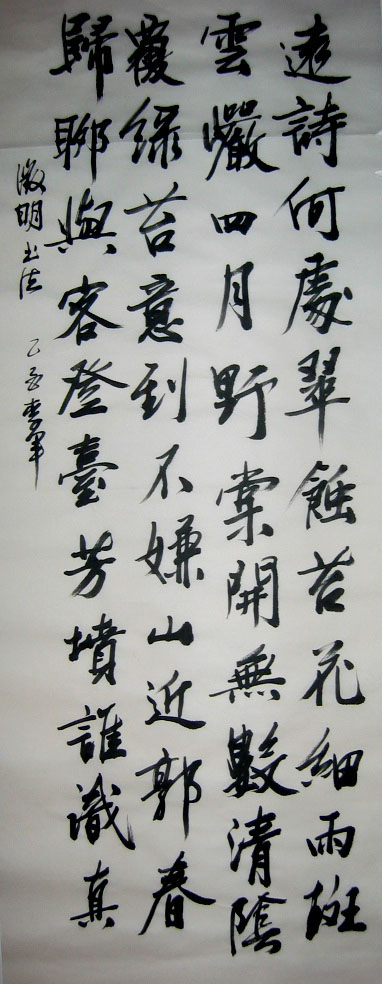 遠詩何處翠蝕苔花細雨斑
雲巖四月野棠開無數清陰
覆綠苔意到不嫌山近郭春
歸聊與客登臺芳墳誰識真
徵明书法 乙酉